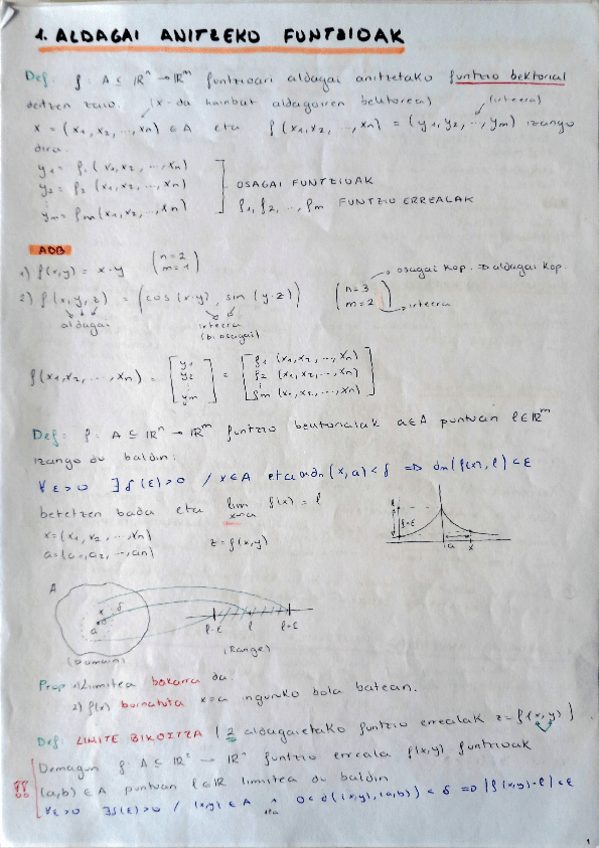 1. ALDAGAI ANITZEKO FUNTZIOAK
Def: f: A ⊆ ℝⁿ → ℝᵐ funtzioari aldagai anitzetako funtzio bektorial
deitzen zaio. (x da hainbat aldagairen bektorea) (irteera)
x = (x₁, x₂, ..., xₙ) ∈ A eta f(x₁, x₂, ..., xₙ) = (y₁, y₂, ..., yₘ) izango
dira.
y₁ = f₁(x₁, x₂, ..., xₙ)
y₂ = f₂(x₁, x₂, ..., xₙ) OSAGAI FUNTZIOAK
⋮
yₘ = fₘ(x₁, x₂, ..., xₙ) f₁, f₂, ..., fₘ FUNTZIO ERREALAK
ADB
1) f(x,y) = x·y (n=2 m=1) osagai kop. ⇒ aldagai kop.
2) f(x,y,z) = (cos(x·y), sin(y·z)) (n=3 m=2) irteera
aldagai irteera
(bi osagai)
f(x₁, x₂, ..., xₙ) = [y₁ y₂ ⋮ yₘ] = [f₁(x₁, x₂, ..., xₙ) f₂(x₁, x₂, ..., xₙ) ⋮ fₘ(x₁, x₂, ..., xₙ)]
Def: f: A ⊆ ℝⁿ → ℝᵐ funtzio bektorialak a∈A puntuan l∈ℝᵐ
izango du baldin:
∀ε>0 ∃δ(ε)>0 / x∈A eta dn(x,a)<δ ⇒ dn(f(x), l)<ε
betetzen bada eta lim x→a f(x) = l
x=(x₁, x₂, ..., xₙ) z=f(x,y)
a=(a₁, a₂, ..., aₙ)
l
a x
A
x δ
a
l-ε l l+ε
(Domain) (Range)
Prop: 1) Limitea bakarra da.
2) f(x) bornatuta x=a inguruko bola batean.
Def: LIMITE BIKOITZA (2 aldagaietako funtzio errealak z=f(x,y))
Demagun f: A ⊆ ℝ² → ℝⁿ funtzio erreala f(x,y) funtzioak
!! (a,b) ∈ A puntuan l∈ℝ limitea du baldin
∀ε>0 ∃δ(ε)>0 / (x,y)∈A ∧ 0<d((x,y),(a,b))<δ ⇒ |f(x,y)-l|<ε
eta
1